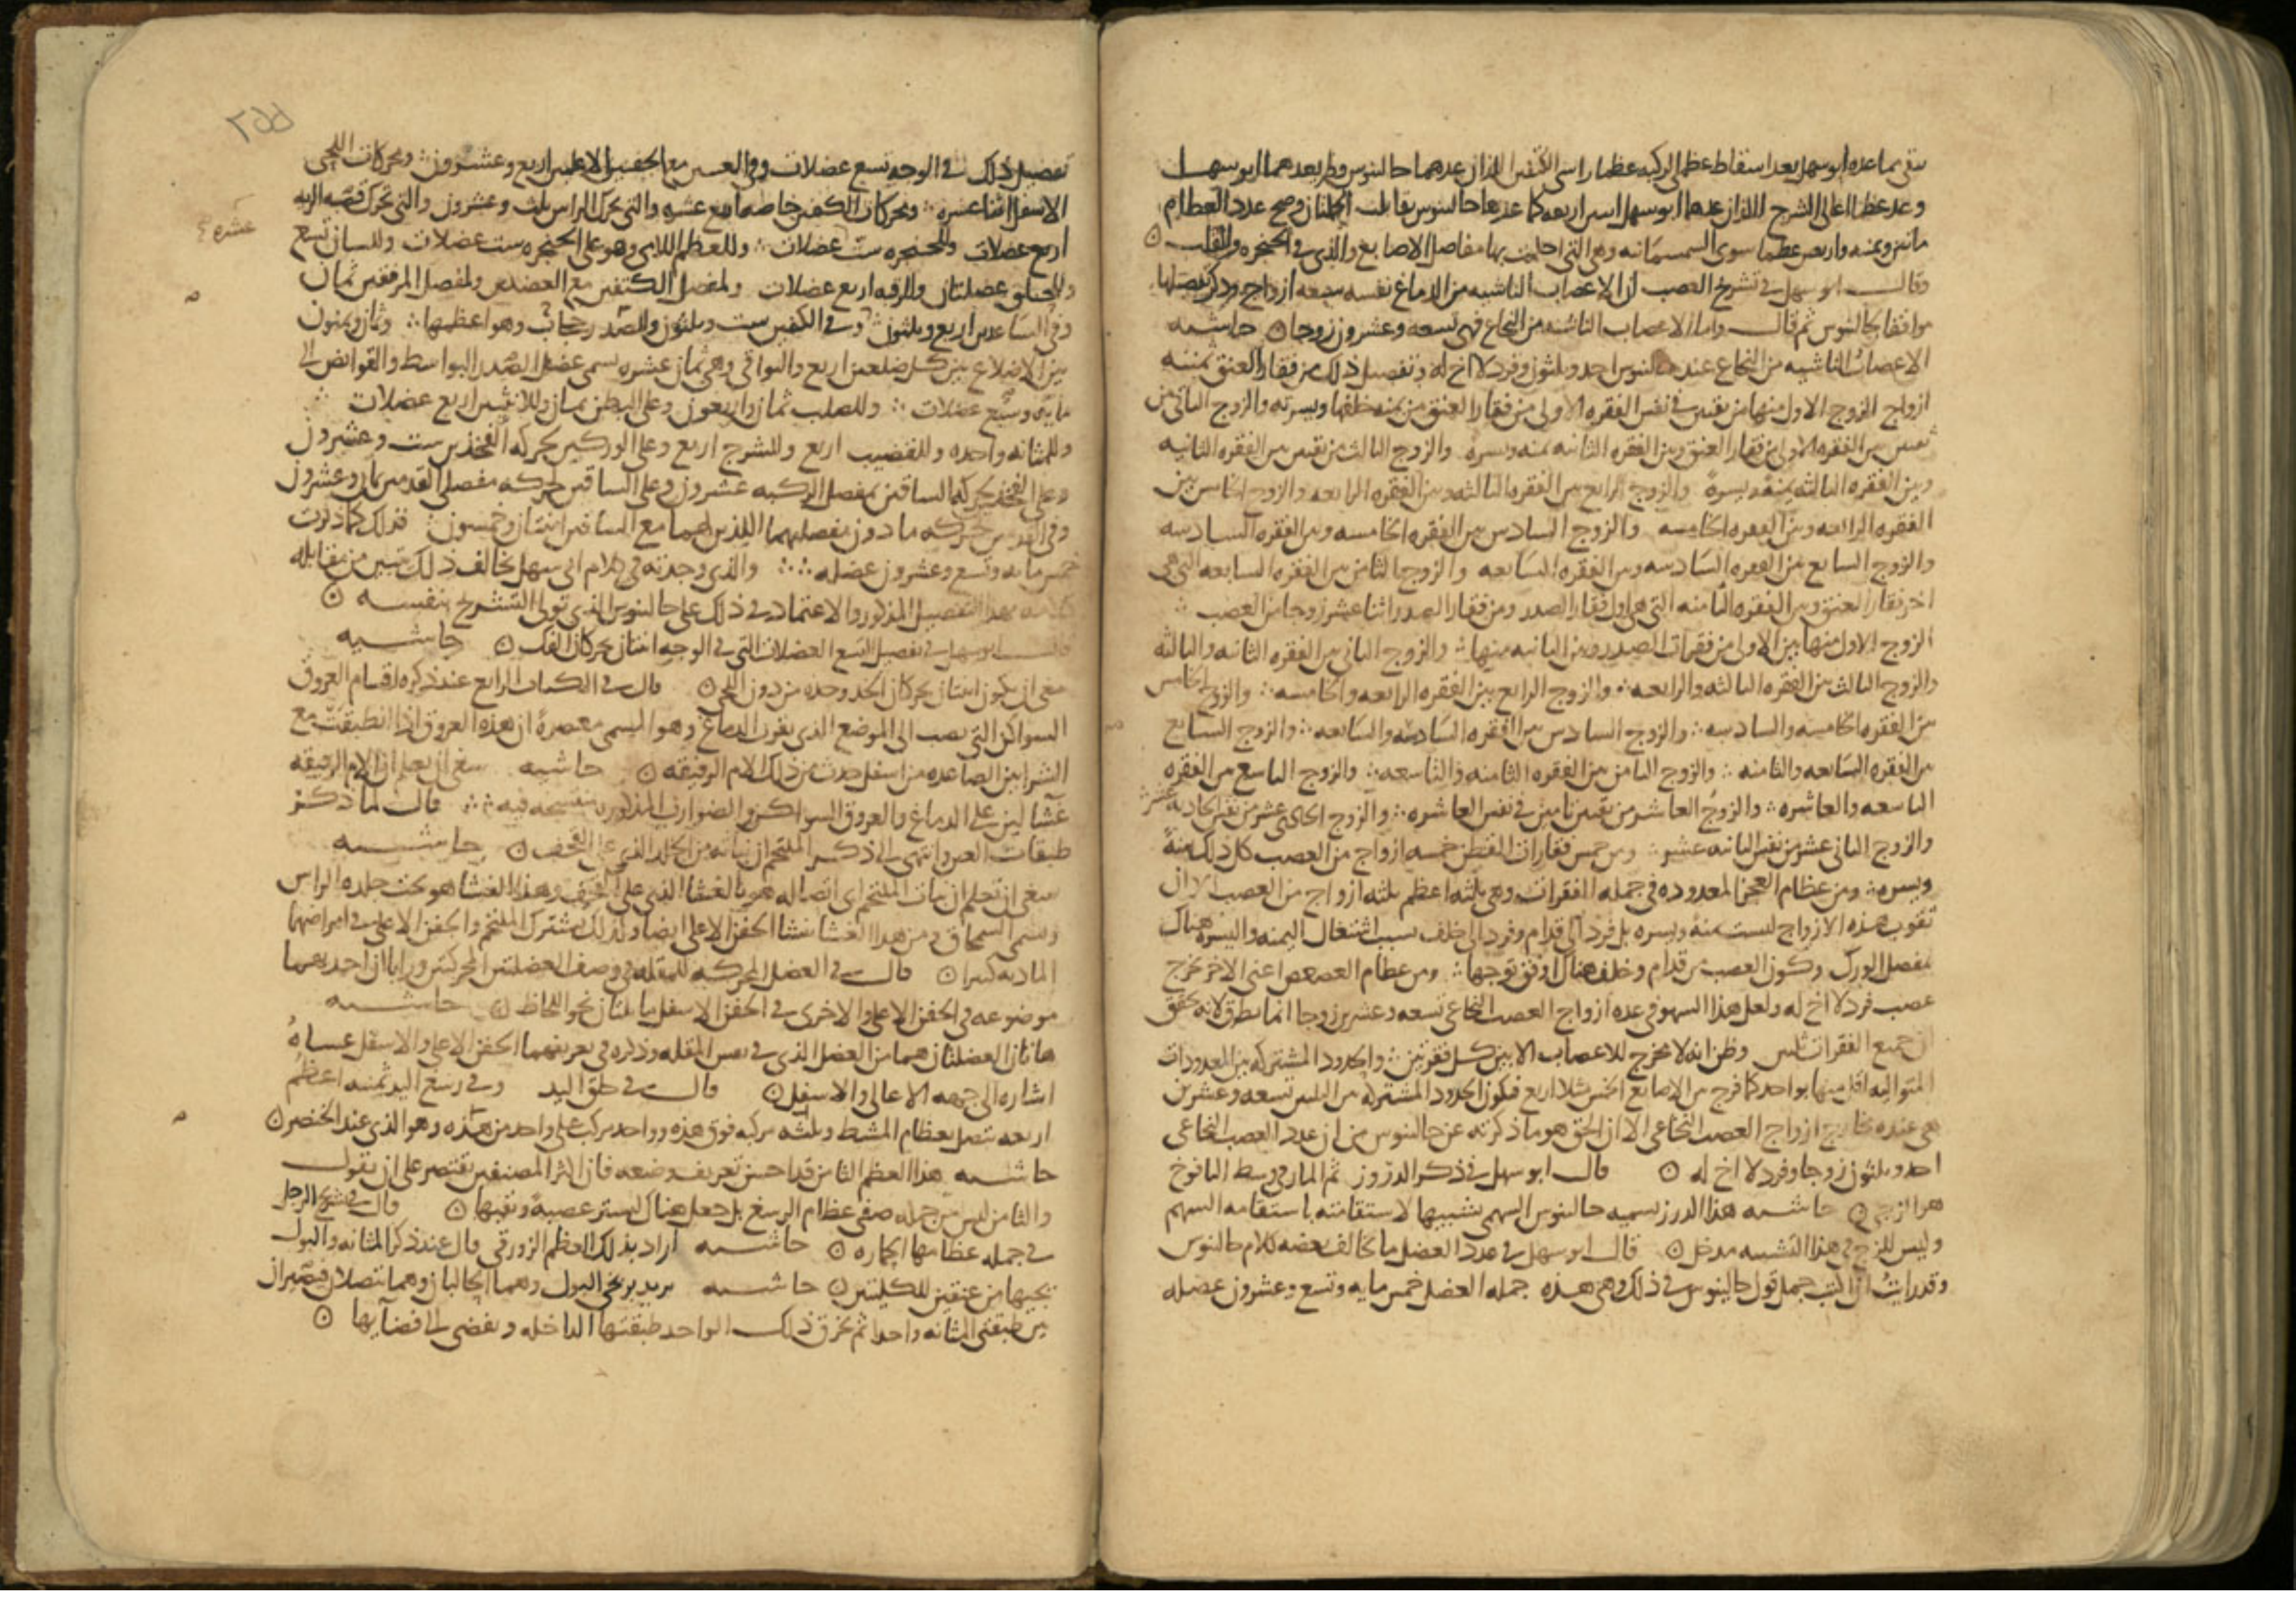 بقى مما عده ابو سهل بعد اسقاط عظمى الركبه عظما راسى الكتفين اللذان عدهما جالينوس ولم يعدهما ابو سهل
وعد عظما اعالى الشرج اللذان عدهما ابو سهل اربعه كما عدها جالينوس تقابلت الجملتان وصح عدد العظام
مائتين وثمنيه واربعين عظما سوى السمسمانيه وهى التى احليت بها مفاصل الاصابع والذى فى الحنجره والقلب
وقال ابو سهل فى تشريح العصب ان الاعصاب الناشيه من الدماغ نفسه سبعه ازواج وذكر تفصيلها
موافقا لجالينوس ثم قال واما الاعصاب الناشيه من النخاع فهى تسعه وعشرون زوجا حاشيه
الاعصاب الناشيه من النخاع عند جالينوس احد وثلثون وفرد لا اخ له وتفصيل ذلك من فقار العنق ثمنيه
ازواج الزوج الاول منها من ثقبين فى نفس الفقره الاولى من فقار العنق من يمنه خلفها ويسرته والزوج الثانى من
ثقبين بين الفقره الاولى من فقار العنق وبين الفقره الثانيه يمنه ويسره والزوج الثالث من ثقبين بين الفقره الثانيه
وبين الفقره الثالثه يمنه ويسرة والزوج الرابع بين الفقره الثالثه وبين الفقره الرابعه والزوج الخامس بين
الفقره الرابعه وبين الفقره الخامسه والزوج السادس بين الفقره الخامسه وبين الفقره السادسه
والزوج السابع بين الفقره السادسه وبين الفقره السابعه والزوج الثامن بين الفقره السابعه التى هى
اخر فقار العنق وبين الفقره الثامنه التى هى اول فقار الصدر ومن فقار الصدر اثنا عشر زوجا من العصب
الزوج الاول منها بين الاولى من فقرات الصدر وبين الثانيه منها والزوج الثانى بين الفقره الثانيه والثالثه
والزوج الثالث بين الفقره الثالثه والرابعه والزوج الرابع بين الفقره الرابعه والخامسه والزوج الخامس
بين الفقره الخامسه والسادسه والزوج السادس بين الفقره السادسه والسابعه والزوج السابع
بين الفقره السابعه والثامنه والزوج الثامن بين الفقره الثامنه والتاسعه والزوج التاسع بين الفقره
التاسعه والعاشره والزوج العاشر من ثقبين تامين فى نفس العاشره والزوج الحادى عشر من ثقبى الحاديه عشر
والزوج الثانى عشر من ثقبى الثانيه عشر ومن خمس فقارات القطن خمسه ازواج من العصب كل ذلك يمنة
ويسره ومن عظام العجز المعدوده فى جمله الفقرات وهى ثلثه اعظم ثلثه ازواج من العصب الا ان
ثقوب هذه الازواج ليست يمنه ويسره بل فرد الى قدام وفرد الى خلف بسبب اشتغال اليمنه واليسره هناك
بمفصل الورك وكون العصب من قدام وخلف هناك اوفق توجها ومن عظام العصعص اعنى الاخر تخرج
عصب فرد لا اخ له ولعل هذا السهو فى عده ازواج العصب النخاعى تسعه وعشرين زوجا انما تطرق لانه تحقق
ان جميع الفقرات ثلثين وظن انه لا مخرج للاعصاب الا بين كل فقرتين والحدود المشتركه بين المعدودات
المتواليه اقل منها بواحد كما فرج بين الاصابع الخمس مثلا اربع فيكون الحدود المشتركه بين الثلثين تسعه وعشرين
هى عنده مخارج ازواج العصب النخاعى الا ان الحق هو ما ذكرته عن جالينوس من ان عدد العصب النخاعى
احد وثلثون زوجا وفرد لا اخ له قال ابو سهل فى ذكر الدروز ثم المار فى وسط اليافوخ
هو ازجى حاشيه هذا الدرز يسميه جالينوس السهمى تشبيها لاستقامته باستقامه السهم
وليس للزج فى هذا التشبيه مدخل قال ابو سهل فى عدد العضل ما يخالف بعضه كلام جالينوس
وقد رايت ان اثبت جمل قول جالينوس فى ذلك وهى هذه جمله العضل خمس مايه وتسع وعشرون عضله
٢٥٥
تفصيل ذلك فى الوجه تسع عضلات وفى العينين مع الجفنين الاعليين اربع وعشرون ومحركات اللحى
الاسفل اثنا عشره ومحركات الكتفين خاصه اربع عشره والتى تحرك الراس ثلث وعشرون والتى تحرك قصبه الريه
عشره
اربع عضلات وللحنجره ست عضلات وللعظم اللامى وهو على الحنجره ست عضلات وللسان تسع
وللحلق عضلتان وللرقبه اربع عضلات ولمفصل الكتفين مع العضدين ولمفصل المرفقين ثمان
وفى الساعدين اربع وثلثون وفى الكفين ست وثلثون وللصدر حجاب وهو اعظمها وثمان وثمنون
بين الاضلاع بين كل ضلعين اربع والبواقى وهى ثمان عشره يسمى عضل الصدر البواسط والقوابض الى
مايه وسبع عضلات وللصلب ثمان واربعون وعلى البطن ثمان وللانثيين اربع عضلات
وللمثانه واحده وللقضيب اربع وللشرج اربع وعلى الوركين لحركه الفخذين ست وعشرون
وعلى الفخذ لحركه الساقين بمفصل الركبه عشرون وعلى الساقين لحركه مفصلى القدمين ثمان وعشرون
وفى القدمين لحركه ما دون مفصليهما اللذين لهما مع الساقين اثنتان وخمسون فذلك كما ذكرت
خمس مايه وتسع وعشرون عضله والذى وجدته فى كلام ابى سهل يخالف ذلك يتبين من مقابله
كلامه بهذا التفصيل المذكور والاعتماد فى ذلك على جالينوس الذى تولى التشريح بنفسه
قال ابو سهل فى تفصيل التسع العضلات التى فى الوجه اثنتان يحركان الفك حاشيه
ينبغى ان يكون اثنتان يحركان الخد وحده من دون اللحى قال فى الكتاب الرابع عند ذكره اقسام العروق
السواكن التى تصب الى الموضع الذى يقرب الدماغ وهو المسمى معصرة ان هذه العروق اذا انطبقت مع
الشرايين الصاعده من اسفل حدث من ذلك الام الرقيقه حاشيه ينبغى ان يعلم ان الام الرقيقه
غشا لين على الدماغ والعروق السواكن والضوارب المذكوره منتسجه فيه قال لما ذكر
طبقات العين وانتهى الى ذكر الملتحم ان نباته من الجلد الذى على القحف حاشيه
ينبغى ان تعلم ان نبات الملتحم اى اتصاله هو بالغشا الذى على القحف وهذا الغشا هو تحت جلده الراس
ويسمى السمحاق ومن هذا الغشا ينشا الجفن الاعلى ايضا ولذلك يشترك الملتحم والجفن الاعلى فى امراضهما
الماديه كثيرا قال فى العضل المحركه للمقله فى وصف العضلتين المحركتين ورابا ان احديهما
موضوعه فى الجفن الاعلى والاخرى فى الجفن الاسفل مايلتان نحو اللحاظ حاشيه
هاتان العضلتان هما من العضل الذى فى نفس المقله وذكره فى تعريفهما الجفن الاعلى والاسفل عساه
اشاره الى جهه الاعالى والاسفل قال فى خلق اليد وفى رسغ اليد ثمنيه اعظم
اربعه تتصل بعظام المشط وثلثه مركبه فوق هذه وواحد مركب على واحد من هذه وهو الذى عند الخنصر
حاشيه هذا العظم الثامن قد احسن تعريف وضعه فان اكثر المصنفين يقتصر على ان يقول
والثامن ليس من جمله صفى عظام الرسغ بل جعل هناك ليستر عصبه وتقيها قال فى تشريح الرجل
فى جمله عظامها الحجاره حاشيه اراد بذلك العظم الزورقى قال عند ذكر المثانه والبول
يجيها من عنقين للكليتين حاشيه يريد بربخى البول وهما الحالبان وهما يتصلان فيصيران
بين طبقتى المثانه واحدا ثم يخرق ذلك الواحد طبقتها الداخله ويفضى الى فضايها